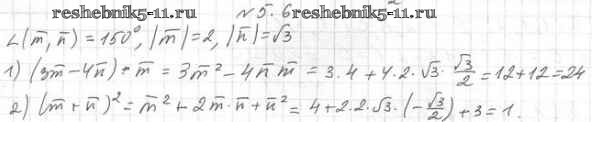 www.reshebnik5-11.ru №5.6 www.reshebnik5-11.ru
∠(m̅, n̅) = 150°, |m̅| = 2, |n̅| = √3
1) (3m̅ - 4n̅) · m̅ = 3m̅² - 4n̅ m̅ = 3·4 + 4·2·√3·√3/2 = 12 + 12 = 24
2) (m̅ + n̅)² = m̅² + 2m̅·n̅ + n̅² = 4 + 2·2·√3·(-√3/2) + 3 = 1.